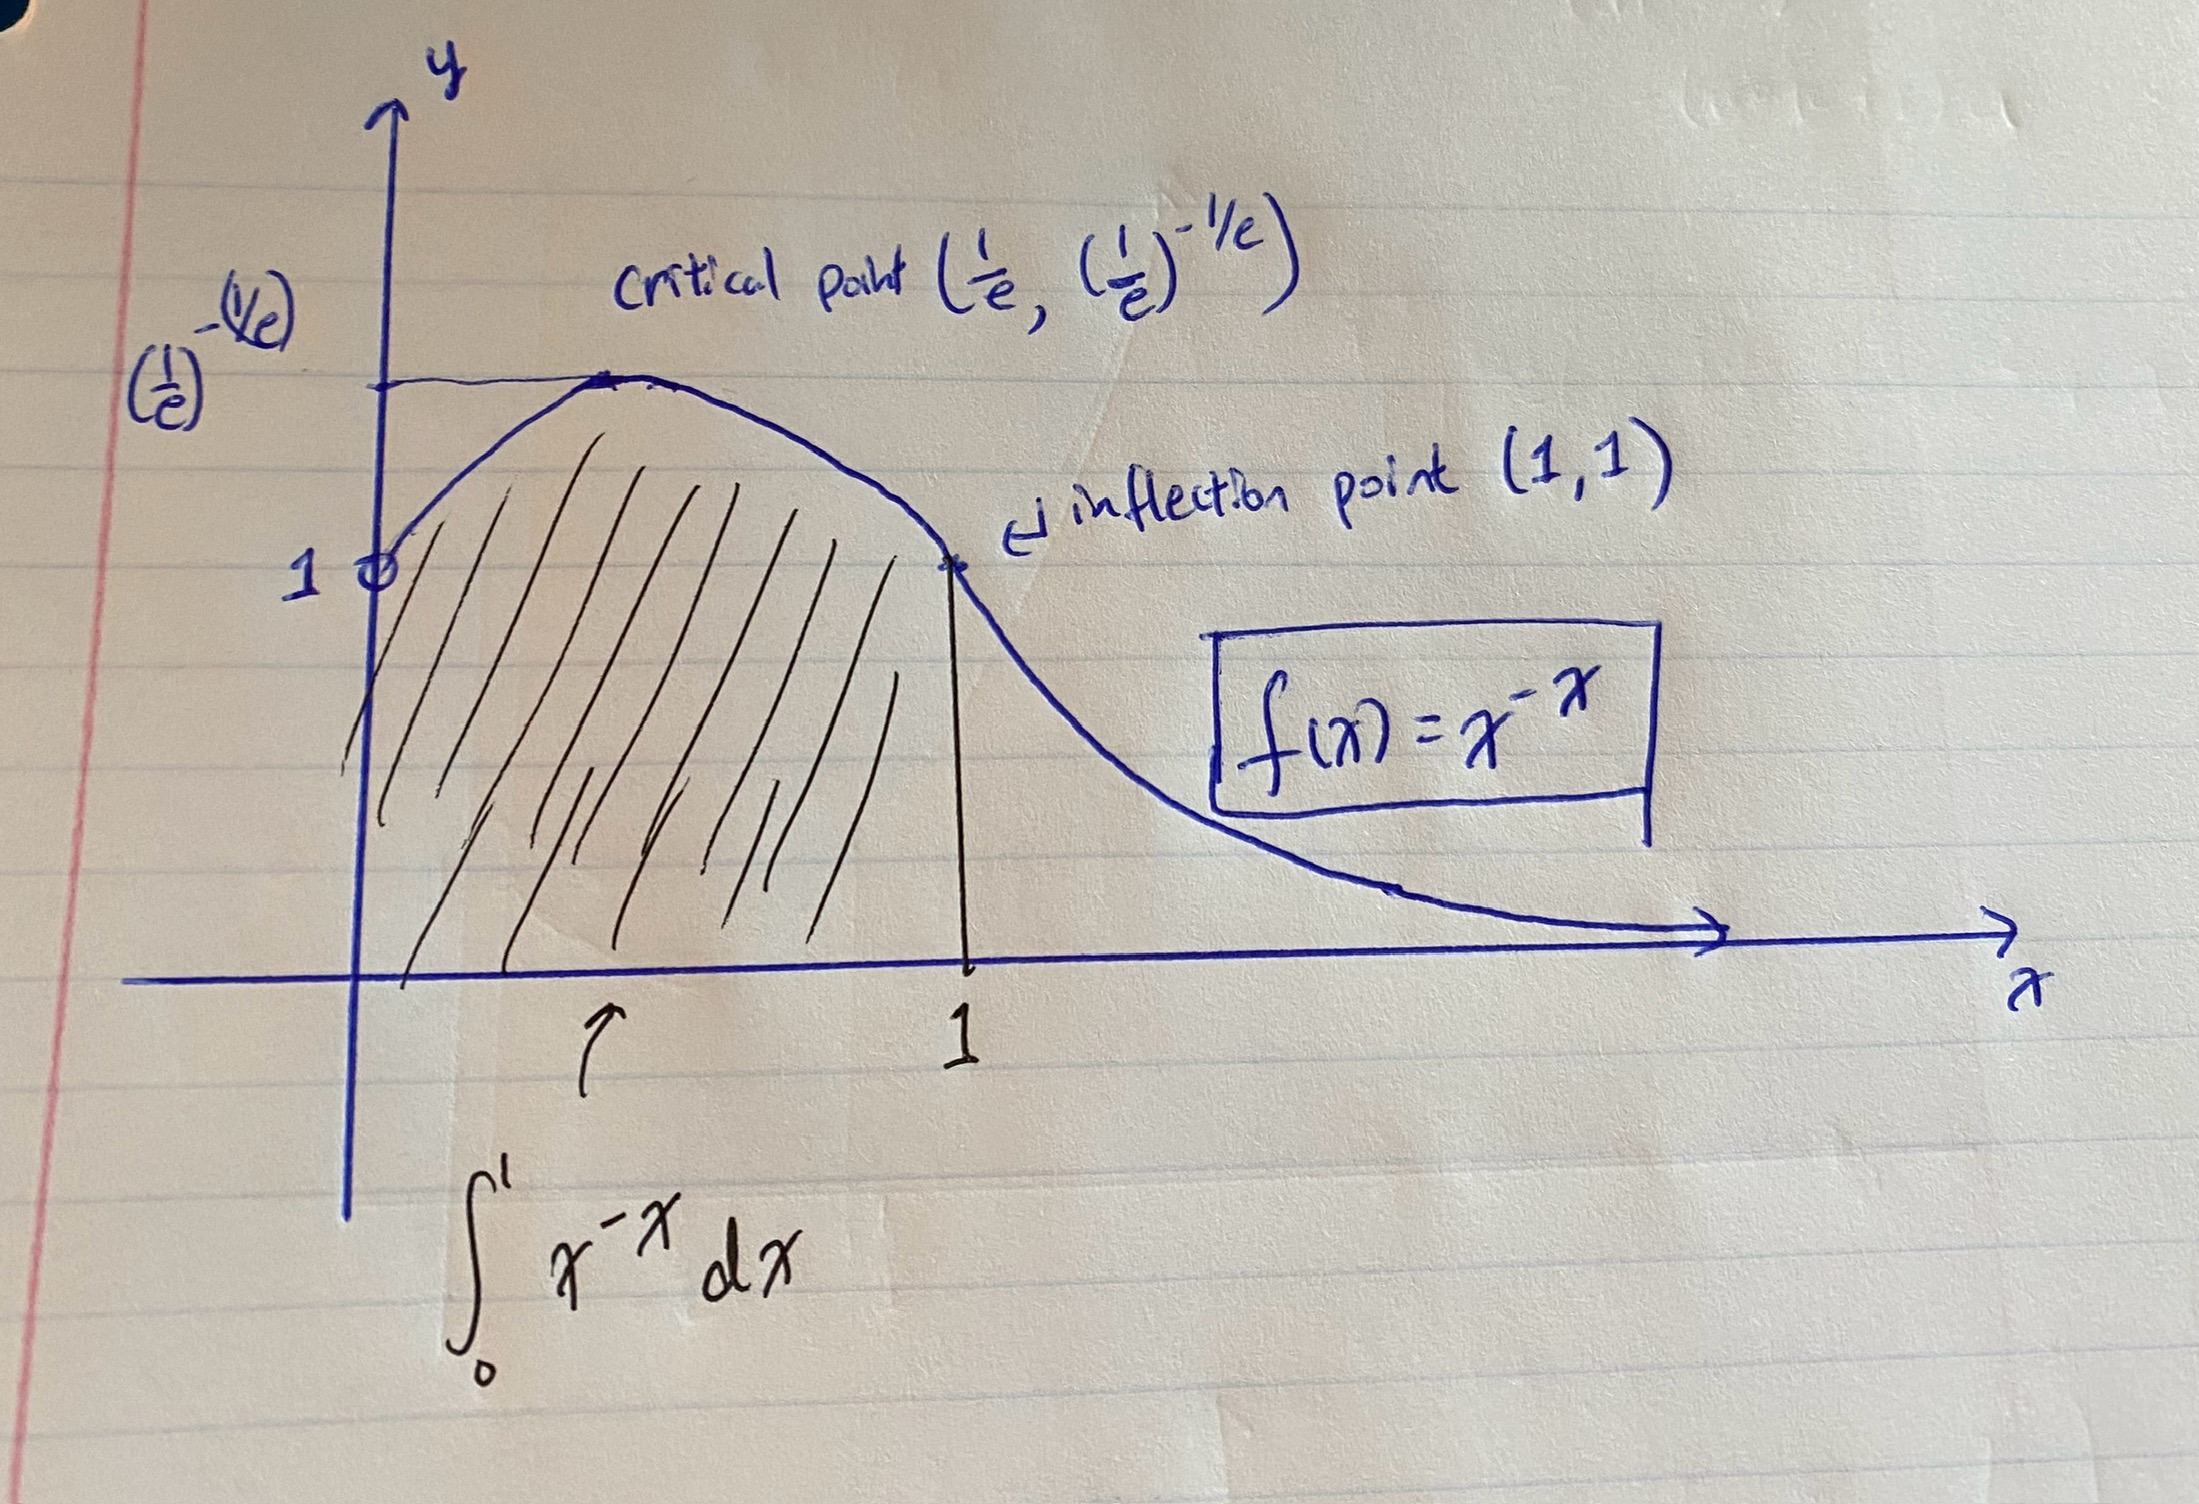 y
critical point (1/e, (1/e)^{-1/e})
(1/e)^{-(1/e)}
inflection point (1,1)
1
f(x) = x^{-x}
x
1
∫₀¹ x^{-x} dx